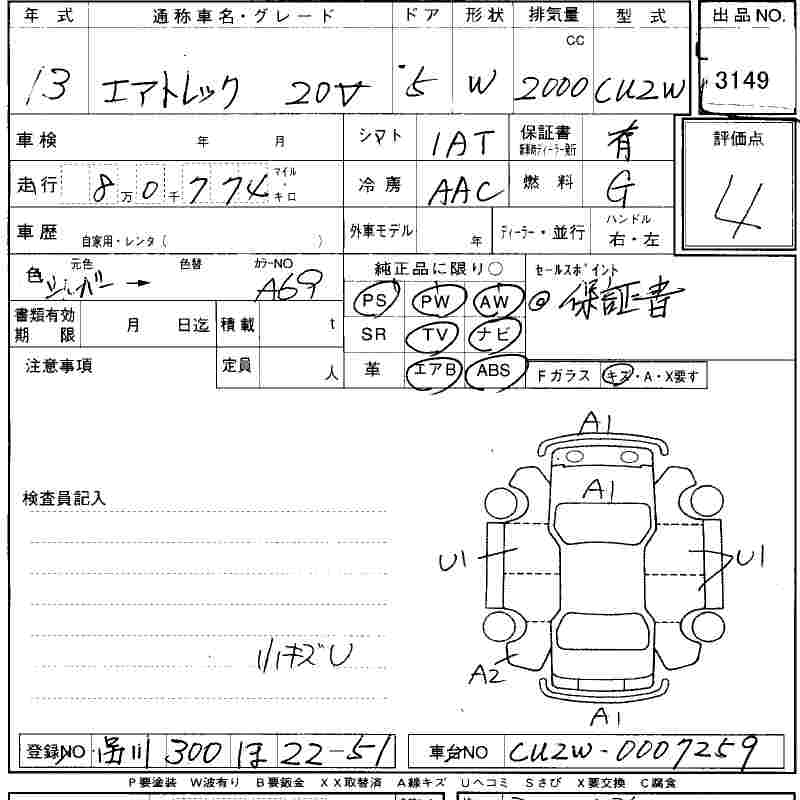 年式 通称車名・グレード ドア 形状 排気量 型式 出品NO.
13 エアトレック 20V 5 W 2000 CC CU2W 3149
車検 年 月 シフト IAT 保証書 新車時ディーラー発行 有 評価点
走行 8万0千774 マイル・キロ 冷房 AAC 燃料 G 4
車歴 自家用・レンタ( ) 外車モデル 年 ディーラー・並行 ハンドル 右・左
色 元色 シルバー → 色替 カラーNO A69 純正品に限り○ セールスポイント
PS PW AW ◎ 保証書
書類有効期限 月 日迄 積載 t SR TV ナビ
注意事項 定員 人 革 エアB ABS Fガラス キズ・A・X要す
A1
A1
検査員記入
U1 U1
小キズU
A2
A1
登録NO 品川 300 ほ 22-51 車台NO CU2W-0007259
P要塗装 W波有り B要鈑金 XX取替済 A線キズ Uヘコミ Sさび X要交換 C腐食